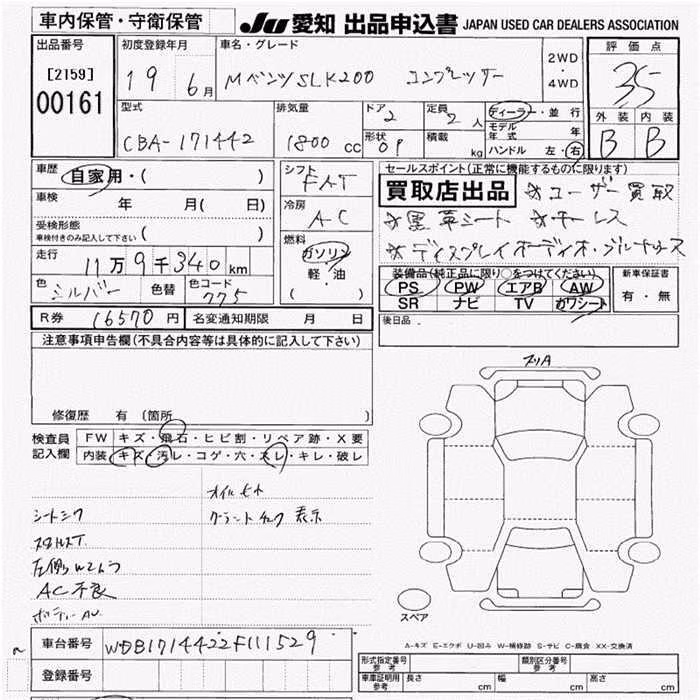 車内保管・守衛保管
JU 愛知 出品申込書 JAPAN USED CAR DEALERS ASSOCIATION
出品番号
[2159]
00161
初度登録年月
19 6月
車名・グレード
MベンツSLK200 コンプレッサー
2WD
・
4WD
評価点
35
型式
CBA-171442
排気量
1800 cc
ドア 2
定員 2 人
形状 OP
積載 kg
ディーラー・並行
モデル年式 年
ハンドル 左・右
外装 内装
B B
車歴
自家用・( )
車検 年 月( 日)
受検形態
車検付きのみ記入して下さい ( )
走行
11万9千340km
色 シルバー
色替
色コード
775
シフト
FAT
冷房
AC
燃料
ガソリン
軽・油
( )
セールスポイント(正常に機能するものに限ります)
買取店出品 ☆ユーザー買取
☆黒革シート ☆キーレス
☆ディスプレイオーディオ・ブルートゥース
装備品(純正品に限り○をつけてください)
PS PW エアB AW
SR ナビ TV カワシート
新車保証書
有・無
R券 16570円 名変通知期限 月 日
後日品
注意事項申告欄(不具合内容等は具体的に記入して下さい)
修復歴 有 (箇所 )
検査員
記入欄
FW キズ・飛石・ヒビ割・リペア跡・X要
内装 キズ・汚レ・コゲ・穴・スレ・キレ・破レ
シートシワ
AC不良
オイル
表示
スペア
A-キズ E-エクボ U-凹み W-補修跡 S-サビ C-腐食 XX-交換済
車台番号 WDB1714422F111529
登録番号
形式指定番号
参考
類別区分番号
参考
車庫証明用
参考
長さ cm 幅 cm 高さ cm